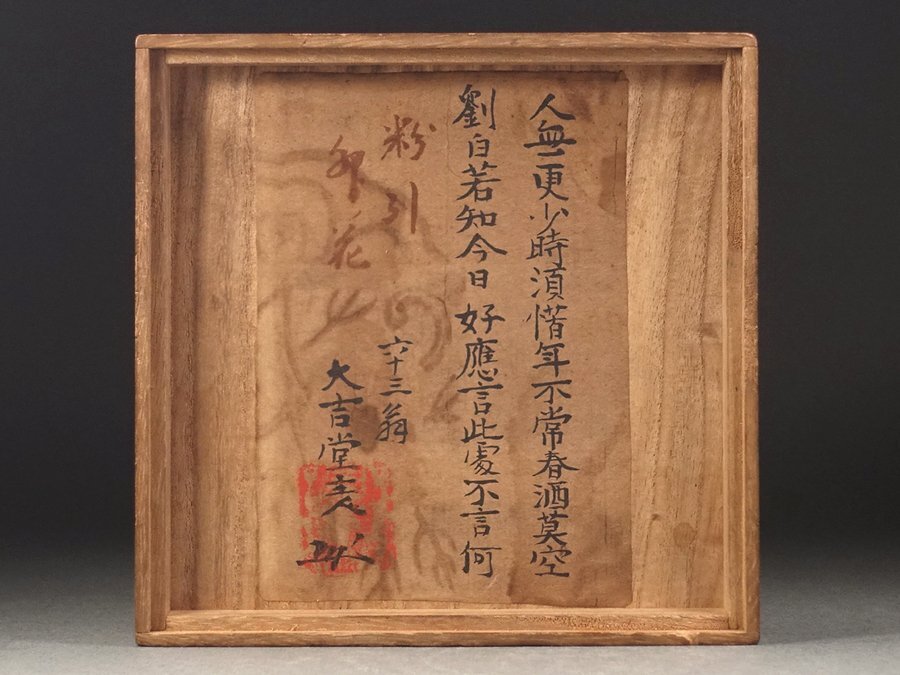 人無更少時須惜年不常春酒莫空
劉白若知今日好應言此處不言何
粉引
花
六十三翁
大吉堂主人